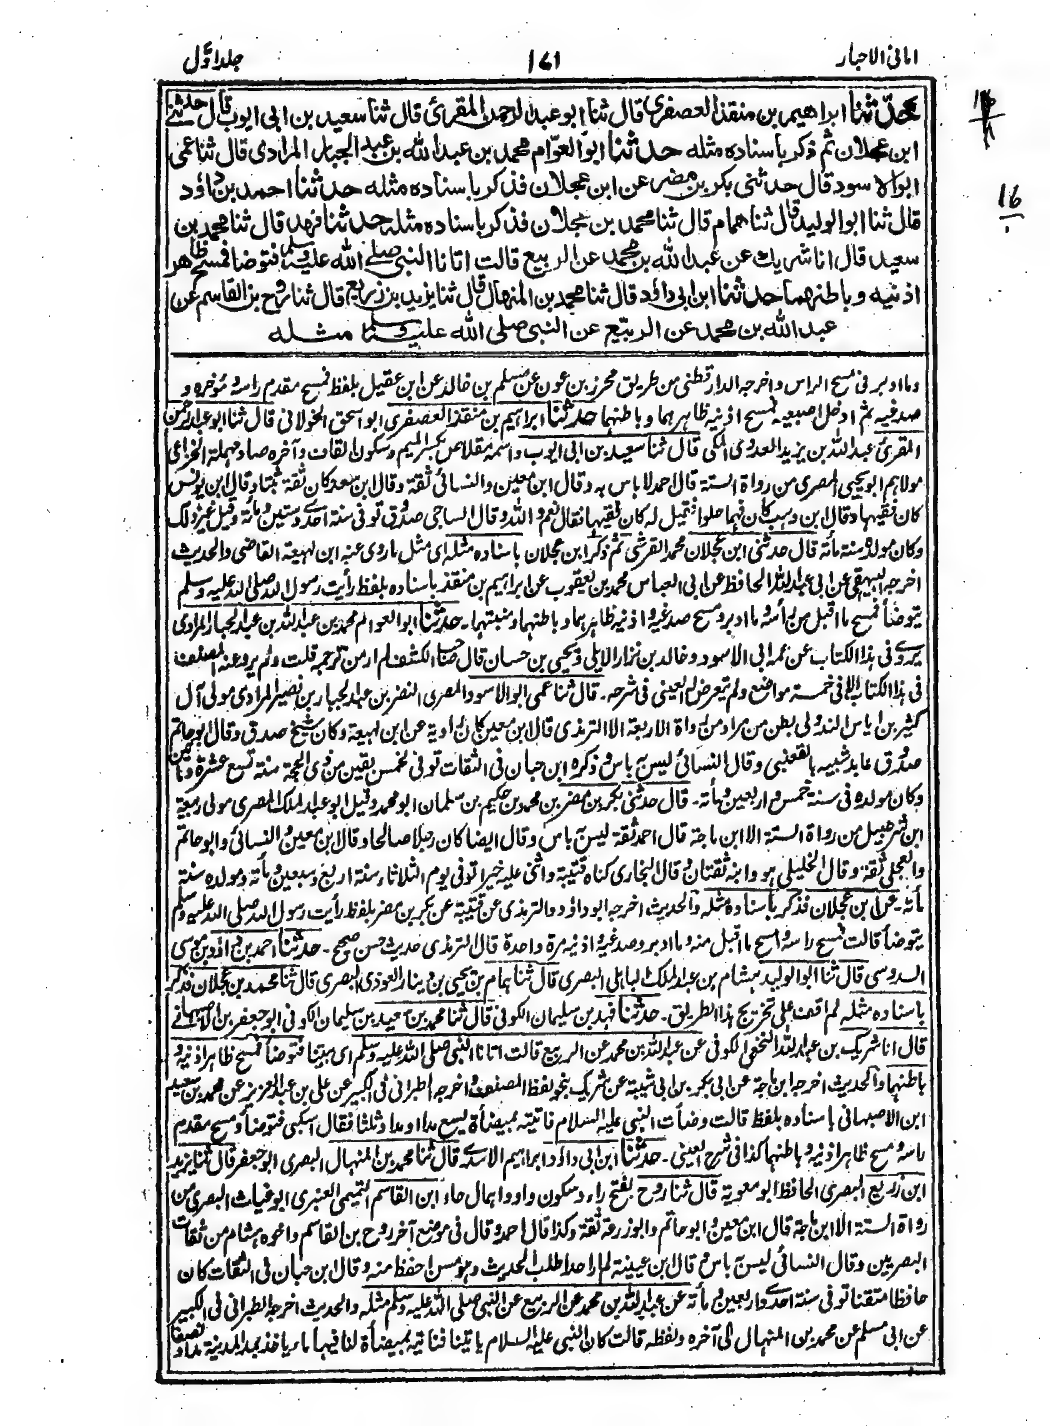 امانی الاحبار
۱۷۱
جلد اوّل
حدّثنا ابراهيم بن منقذ العصفري قال ثنا ابو عبد الرحمن المقرئ قال ثنا سعيد بن ابى ايوب قال حدثنى
ابن عجلان ثم ذكر باسناده مثله حدثنا ابو العوّام محمد بن عبد الله بن عبد الجبار المرادى قال ثنا عمى
ابو الاسود قال حدثنى بكر بن مضر عن ابن عجلان فذكر باسناده مثله حدثنا احمد بن داؤد
قال ثنا ابو الوليد قال ثنا همام قال ثنا محمد بن عجلان فذكر باسناده مثله حدثنا فهد قال ثنا محمد بن
سعيد قال انا شريك عن عبد الله بن محمد عن الربيع قالت اتانا النبى صلے الله عليه وسلم فتوضا فمسح ظاهر
اذنيه وباطنهما حدثنا ابن ابى داؤد قال ثنا محمد بن المنهال قال ثنا يزيد بن زريع قال ثنا روح بن القاسم عن
عبد الله بن محمد عن الربيّع عن النبى صلى الله عليه وسلم مثله
وما ادبر فى مسح الراس واخرجه الدارقطنى من طريق محرز بن عون عن مسلم بن خالد عن ابن عقيل بلفظ فمسح مقدم راسه ومؤخره و
صدغيه ثم ادخل اصبعيه فمسح اذنيه ظاهرهما وباطنهما حدثنا ابراهيم بن منقذ العصفرى ابو اسحق الخولانى قال ثنا ابو عبد الرحمن
المقرئ عبد الله بن يزيد العدوى المكى قال ثنا سعيد بن ابى ايوب واسمه مقلاص بكسر الميم وسكون القاف وآخره صاد مهملة الخزاعى
مولاهم ابو يحيى المصرى من رواة الستة قال احمد لا باس به وقال ابن معين والنسائى ثقة وقال ابن سعد كان ثقة ثبتا وقال ابن يونس
كان فقيها وقال ابن وهب كان فهما حلوا فقيل له كان فقيها فقال نعم والله وقال الساجى صدوق توفى سنة احدے وستين ومأة وقيل غير ذلك
وكان مولده سنة مأة قال حدثنى ابن عجلان محمد القرشى ثم ذكر ابن عجلان باسناده مثله اى مثل ما روى عنه ابن لهيعة القاضى والحديث
اخرجه البيهقى عن ابى عبد الله الحافظ عن ابى العباس محمد بن يعقوب عن ابراهيم بن منقذ باسناده بلفظ رأيت رسول الله صلى الله عليه وسلم
يتوضأ فمسح ما اقبل من رأسه وما ادبر ومسح صدغيه واذنيه ظاهرهما وباطنهما ومنبتهما۔ حدثنا ابو العوام محمد بن عبد الله بن عبد الجبار المرادى
يروى فى هذا الكتاب عن عمه ابى الاسود وخالد بن نزار الايلى ويحيى بن حسان قال صاحب الكشف لم ار من ترجمه قلت ولم يرو عنه المصنف
فى هذا الكتاب الا فى خمسة مواضع ولم يتعرض له العينى فى شرحه۔ قال ثنا عمى ابو الاسود المصرى النضر بن عبد الجبار بن نضير المرادى مولى آل
كثير بن اياس الندولى بطن من مراد من رواة الاربعة الا الترمذى قال ابن معين كان راوية عن ابن لهيعة وكان شيخ صدق وقال ابو حاتم
صدوق عابد شبيه بالقعنبى وقال النسائى ليس به باس وذكره ابن حبان فى الثقات توفى لخمس بقين من ذى الحجة سنة تسع عشرة ومائتين
وكان مولده فى سنة خمس واربعين ومأة۔ قال حدثنى بكر بن مضر بن محمد بن حكيم بن سلمان ابو محمد وقيل ابو عبد الملك المصرى مولى ربيعة
ابن شرحبيل من رواة الستة الا ابن ماجة قال احمد ثقة ليس به باس وقال ايضا كان رجلا صالحا وقال ابن معين والنسائى وابو حاتم
والعجلى ثقة وقال الخليلى هو وابنه ثقتان وقال البخارى كناه قتيبة واثنى عليه خيرا توفى يوم الثلاثاء سنة اربع وسبعين ومأة ومولده سنة
مأة۔ عن ابن عجلان فذكر باسناده مثله والحديث اخرجه ابو داؤد والترمذى عن قتيبة عن بكر بن مضر بلفظ رأيت رسول الله صلى الله عليه وسلم
يتوضأ قالت فمسح راسه ومسح ما اقبل منه وما ادبر وصدغيه واذنيه مرة واحدة قال الترمذى حديث حسن صحيح۔ حدثنا احمد بن داؤد بن موسى
السدوسى قال ثنا ابو الوليد هشام بن عبد الملك الباهلى البصرى قال ثنا همام بن يحيى بن دينار العوذى البصرى قال ثنا محمد بن عجلان فذكر
باسناده مثله لم اقف على تخريج هذا الطريق۔ حدثنا فهد بن سليمان الكوفى قال ثنا محمد بن سعيد بن سليمان الكوفى ابو جعفر بن الاصبهانى
قال انا شريك بن عبد الله النخعى الكوفى عن عبد الله بن محمد عن الربيع قالت اتانا النبى صلى الله عليه وسلم اى بيتنا فتوضأ فمسح ظاهر اذنيه و
باطنهما والحديث اخرجه ابن ماجة عن ابى بكر بن ابى شيبة عن شريك بنحو لفظ المصنف واخرجه الطبرانى فى الكبير عن على بن عبد العزيز عن محمد بن سعيد
ابن الاصبهانى باسناده بلفظ قالت وضأت النبى عليه السلام فاتيته بميضأة يسع مدا ومدا وثلثا فقال اسكبى فتوضأ ومسح مقدم
راسه ومسح ظاهر اذنيه وباطنهما كذا فى شرح العينى۔ حدثنا ابن ابى داؤد ابراهيم الاسدے قال ثنا محمد بن المنهال البصرى ابو جعفر قال ثنا يزيد
ابن زريع البصرى الحافظ ابو معوية قال ثنا روح بفتح راء وسكون واو واهمال حاء ابن القاسم التميمى العنبرى ابو غياث البصرى من
رواة الستة الا ابن ماجة قال ابن معين وابو حاتم وابو زرعة ثقة وكذا قال احمد وقال فى موضع آخر روح بن القاسم واخوه هشام من ثقات
البصريين وقال النسائى ليس به باس وقال ابن عيينة لم ار احدا طلب الحديث وهو مسن احفظ منه وقال ابن حبان فى الثقات كان
حافظا متقنا توفى سنة احدے واربعين ومأة عن عبد الله بن محمد عن الربيع عن النبى صلى الله عليه وسلم مثله والحديث اخرجه الطبرانى فى الكبير
عن ابى مسلم عن محمد بن المنهال الى آخره ولفظه قالت كان النبى عليه السلام ياتينا فناتيه بميضأة لنا فيها ماء ياخذ بمد المدينة مدا ونصفا
16